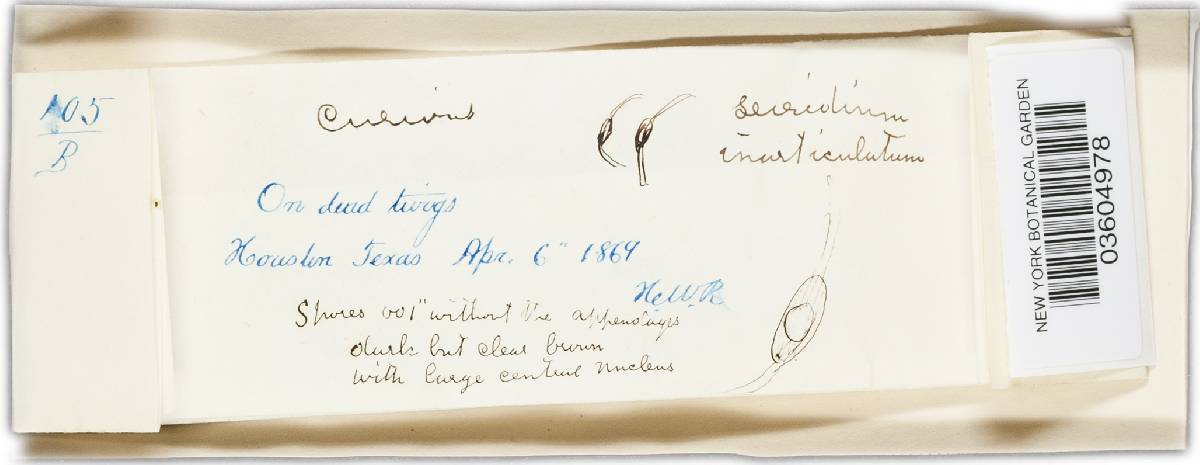 105
B
Curious
Seiridium
inarticulatum
On dead twigs
Houston Texas Apr. 6" 1869
H.W.R.
Spores 001" without the appendages
dark but clear brown
with large central nucleus
NEW YORK BOTANICAL GARDEN
03604978